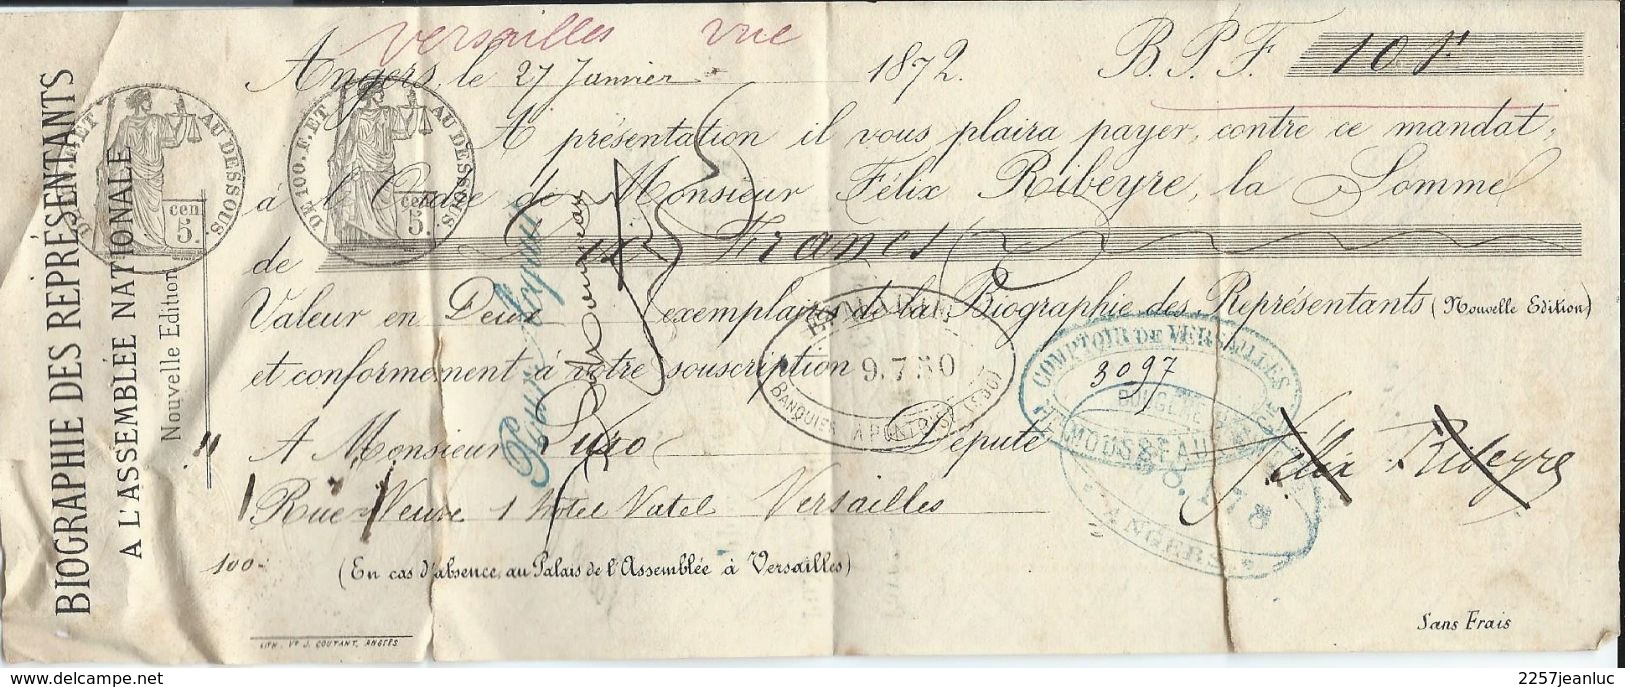 BIOGRAPHIE DES REPRÉSENTANTS
A L'ASSEMBLÉE NATIONALE
Nouvelle Edition
DE 100. F. ET AU DESSOUS.
cen
5.
DE 100. F. ET AU DESSOUS.
cen
5.
Versailles vue
Angers, le 27 Janvier 1872. B. P. F. 10 f
A présentation il vous plaira payer, contre ce mandat,
à l'Ordre de Monsieur Félix Ribeyre, la Somme
de dix Francs
Valeur en Deux exemplaires de la Biographie des Représentants (Nouvelle Edition)
et conformément à votre souscription
9.7.50
BANQUIERS A PONTRIEUX
COMPTOIR DE VERSAILLES
3097
MOUSSEAU
ANGERS
A Monsieur Député
Félix Ribeyre
Rue Neuve 1 hotel Vatel Versailles
100
(En cas d'absence, au Palais de l'Assemblée à Versailles)
Sans Frais
LITH. Ve J. COUTANT, ANGERS
2257jeanluc